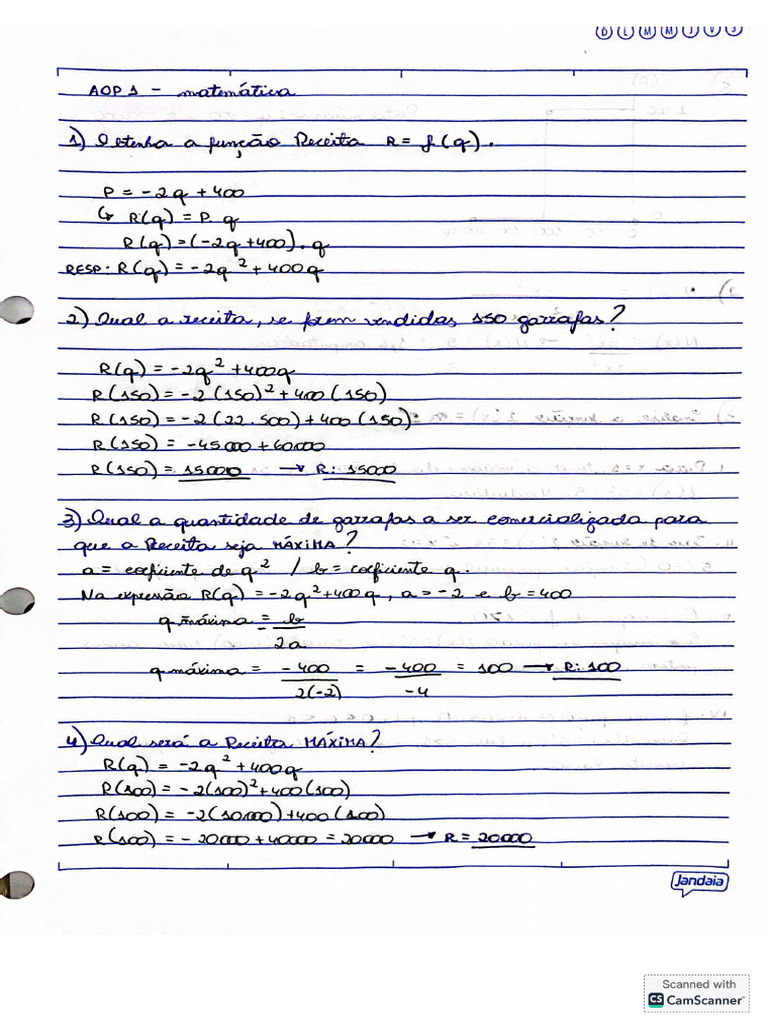 D L M M J V S
AOP 1 - matemática
1) Obtenha a função Receita R = f(q).
P = -2q + 400
↳ R(q) = P. q
R(q) = (-2q + 400) . q
RESP: R(q) = -2q² + 400q
2) Qual a receita, se forem vendidas 150 garrafas?
R(q) = -2q² + 400q
R(150) = -2(150)² + 400(150)
R(150) = -2(22.500) + 400(150)
R(150) = -45000 + 60000
R(150) = 15000 → R: 15000
3) Qual a quantidade de garrafas a ser comercializada para
que a Receita seja MÁXIMA?
a = coeficiente de q² / b = coeficiente q.
Na expressão R(q) = -2q² + 400q, a = -2 e b = 400
q máxima = -b
2a
q máxima = -400 = -400 = 100 → R: 100
2(-2) -4
4) Qual será a Receita MÁXIMA?
R(q) = -2q² + 400q
R(100) = -2(100)² + 400(100)
R(100) = -2(10000) + 400(100)
R(100) = -20000 + 40000 = 20000 → R = 20000
Jandaia
Scanned with
CS CamScanner